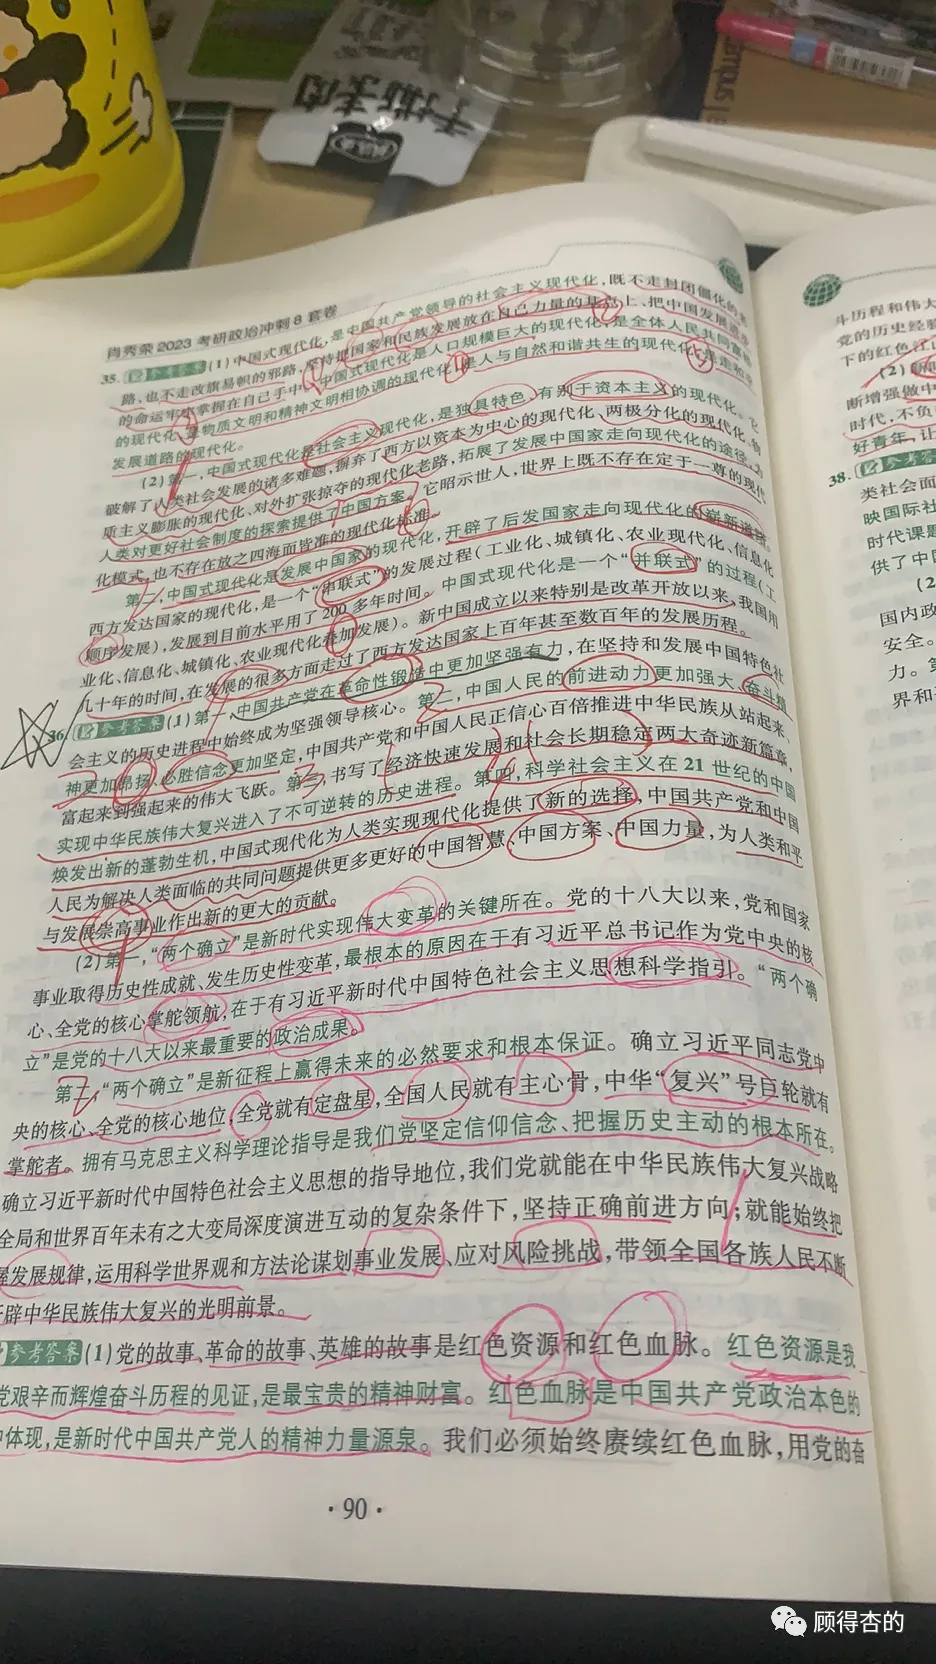 手撕素肉
肖秀荣2023考研政治冲刺8套卷
35. 参考答案 (1)中国式现代化,是中国共产党领导的社会主义现代化,既不走封闭僵化的老
路,也不走改旗易帜的邪路,坚持把国家和民族发展放在自己力量的基点上、把中国发展进步
的命运牢牢掌握在自己手中。中国式现代化是人口规模巨大的现代化,是全体人民共同富裕
的现代化,是物质文明和精神文明相协调的现代化,是人与自然和谐共生的现代化,是走和平
发展道路的现代化。
(2)第一,中国式现代化是社会主义现代化,是独具特色、有别于资本主义的现代化。它
破解了人类社会发展的诸多难题,摒弃了西方以资本为中心的现代化、两极分化的现代化、物
质主义膨胀的现代化、对外扩张掠夺的现代化老路,拓展了发展中国家走向现代化的途径,为
人类对更好社会制度的探索提供了中国方案。它昭示世人,世界上既不存在定于一尊的现代
化模式,也不存在放之四海而皆准的现代化标准。
第二,中国式现代化是发展中国家的现代化,开辟了后发国家走向现代化的崭新道路。
西方发达国家的现代化,是一个“串联式”的发展过程(工业化、城镇化、农业现代化、信息化
顺序发展),发展到目前水平用了200多年时间。中国式现代化是一个“并联式”的过程(工
业化、信息化、城镇化、农业现代化叠加发展)。新中国成立以来特别是改革开放以来,我国用
几十年的时间,在发展的很多方面走过了西方发达国家上百年甚至数百年的发展历程。
36. 参考答案 (1)第一,中国共产党在革命性锻造中更加坚强有力,在坚持和发展中国特色社
会主义的历史进程中始终成为坚强领导核心。第二,中国人民的前进动力更加强大、奋斗精
神更加昂扬、必胜信念更加坚定,中国共产党和中国人民正信心百倍推进中华民族从站起来、
富起来到强起来的伟大飞跃。第三,书写了经济快速发展和社会长期稳定两大奇迹新篇章,
实现中华民族伟大复兴进入了不可逆转的历史进程。第四,科学社会主义在21世纪的中国
焕发出新的蓬勃生机,中国式现代化为人类实现现代化提供了新的选择,中国共产党和中国
人民为解决人类面临的共同问题提供更多更好的中国智慧、中国方案、中国力量,为人类和平
与发展崇高事业作出新的更大的贡献。
(2)第一,“两个确立”是新时代实现伟大变革的关键所在。党的十八大以来,党和国家
事业取得历史性成就、发生历史性变革,最根本的原因在于有习近平总书记作为党中央的核
心、全党的核心掌舵领航,在于有习近平新时代中国特色社会主义思想科学指引。“两个确
立”是党的十八大以来最重要的政治成果。
第二,“两个确立”是新征程上赢得未来的必然要求和根本保证。确立习近平同志党中
央的核心、全党的核心地位,全党就有定盘星,全国人民就有主心骨,中华“复兴”号巨轮就有
掌舵者。拥有马克思主义科学理论指导是我们党坚定信仰信念、把握历史主动的根本所在。
确立习近平新时代中国特色社会主义思想的指导地位,我们党就能在中华民族伟大复兴战略
全局和世界百年未有之大变局深度演进互动的复杂条件下,坚持正确前进方向;就能始终把
握发展规律,运用科学世界观和方法论谋划事业发展、应对风险挑战,带领全国各族人民不断
开辟中华民族伟大复兴的光明前景。
参考答案 (1)党的故事、革命的故事、英雄的故事是红色资源和红色血脉。红色资源是我
党艰辛而辉煌奋斗历程的见证,是最宝贵的精神财富。红色血脉是中国共产党政治本色的
中体现,是新时代中国共产党人的精神力量源泉。我们必须始终赓续红色血脉,用党的奋
·90·
斗历程和伟大
党的历史经验
下的红色江山
(2)
断增强做中
时代,不负
好青年,让
38. 参考答案
类社会面
映国际社
时代课题
供了中国
(2
国内政
安全。
力。第
界和
顾得杏的